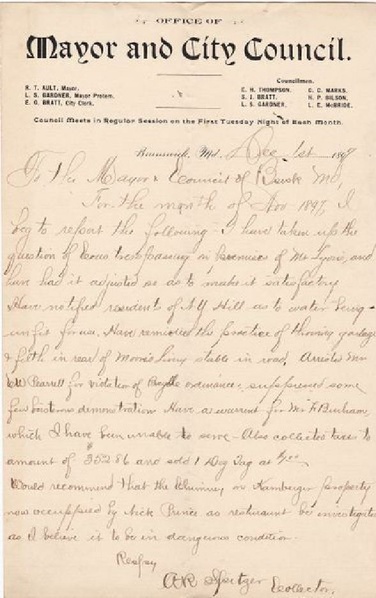 OFFICE OF
Mayor and City Council.
R. T. AULT, Mayor.
L. S. GARDNER, Mayor Protem.
E. G. BRATT, City Clerk.
Councilmen.
E. H. THOMPSON,
S. J. BRATT,
L. S. GARDNER,
C. C. MARKS,
H. P. GILSON,
L. E. McBRIDE.
Council Meets in Regular Session on the First Tuesday Night of Each Month.
Brunswick, Md., Dec 1st 1897
To the Mayor & Council of Bwsk Md,
For the month of Nov 1897, I
beg to report the following. I have taken up the
question of trespassing on premises of Mr and
have had it adjusted so as to make it satisfactory
Have notified resident of Hill as to water being
unfit for use. Have remedied the practice of throwing garbage
& filth in rear of livery stable in road. Arrested Mr
for violation of ordinance, suppressed some
few demonstration Have a warrant for Mr
which I have been unable to serve - Also collected taxes to
amount of $352.86 and sold 1 Dog Tag at
Would recommend that the Chimney on property
now occuppied by Nick Prince as restaurant be investigated
as I believe it to be in dangerous condition
Respy
A R Spitzer Collector.